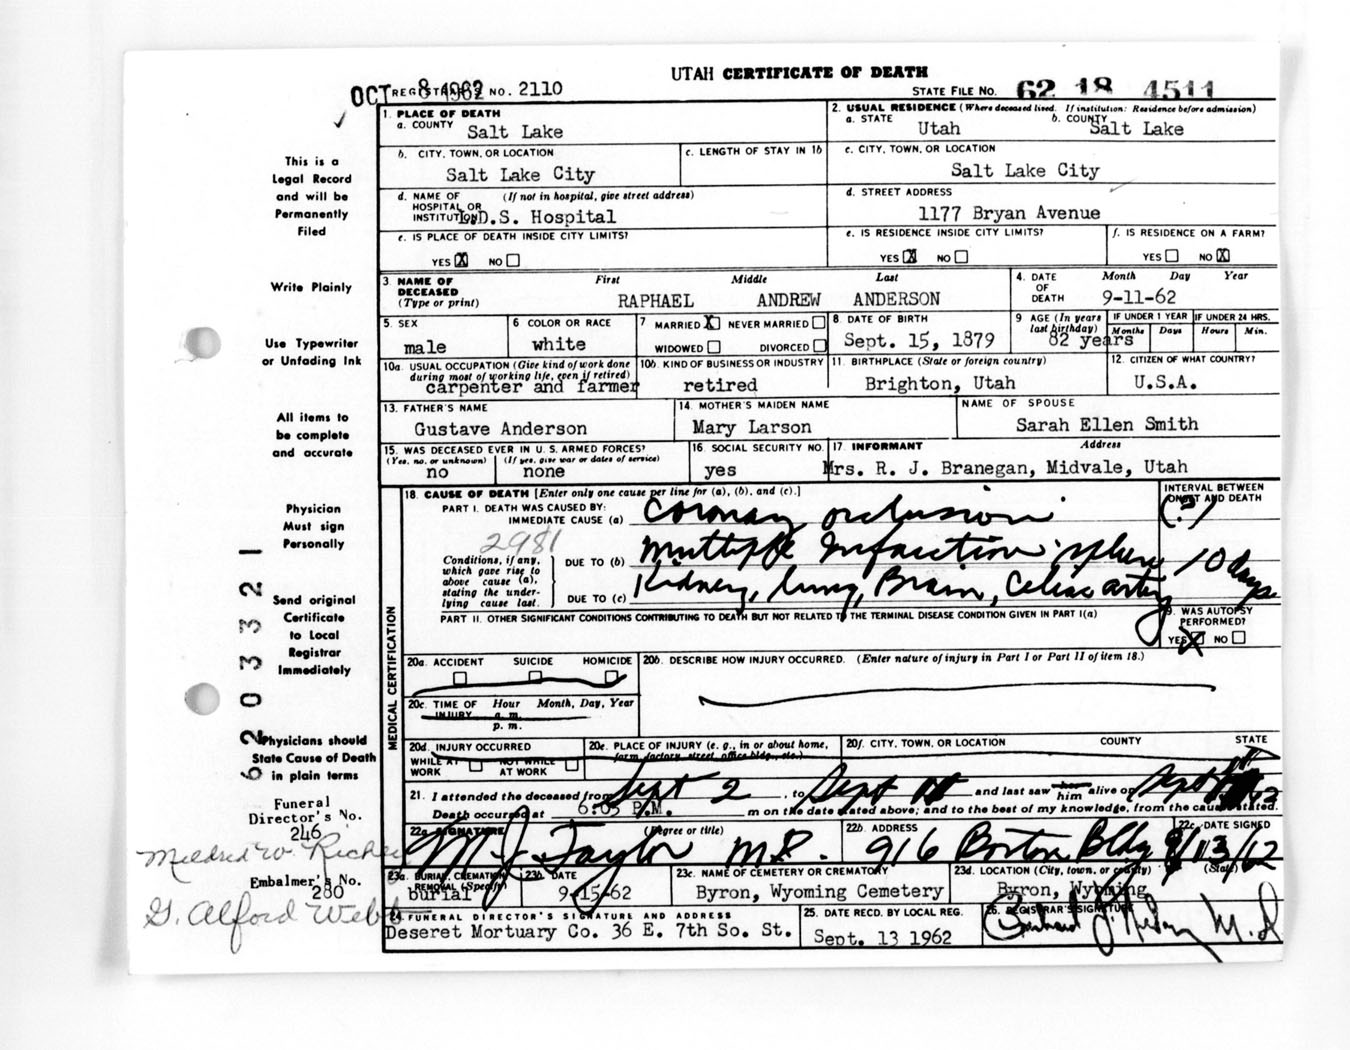 UTAH CERTIFICATE OF DEATH
OCT 8 1962 REGISTRAR'S NO. 2110
STATE FILE NO. 62 18 4511
1. PLACE OF DEATH
a. COUNTY Salt Lake
2. USUAL RESIDENCE (Where deceased lived. If institution: Residence before admission)
a. STATE Utah b. COUNTY Salt Lake
b. CITY, TOWN, OR LOCATION Salt Lake City
c. LENGTH OF STAY IN 1b
c. CITY, TOWN, OR LOCATION Salt Lake City
d. NAME OF HOSPITAL OR INSTITUTION (If not in hospital, give street address) L.D.S. Hospital
d. STREET ADDRESS 1177 Bryan Avenue
e. IS PLACE OF DEATH INSIDE CITY LIMITS?
YES X NO
e. IS RESIDENCE INSIDE CITY LIMITS?
YES X NO
f. IS RESIDENCE ON A FARM?
YES NO X
3. NAME OF DECEASED (Type or print)
First Middle Last
RAPHAEL ANDREW ANDERSON
4. DATE OF DEATH Month Day Year
9-11-62
5. SEX male
6 COLOR OR RACE white
7 MARRIED X NEVER MARRIED
WIDOWED DIVORCED
8. DATE OF BIRTH Sept. 15, 1879
9 AGE (In years last birthday) 82 years
IF UNDER 1 YEAR Months Days
IF UNDER 24 HRS. Hours Min.
10a. USUAL OCCUPATION (Give kind of work done during most of working life, even if retired) carpenter and farmer
10b. KIND OF BUSINESS OR INDUSTRY retired
11. BIRTHPLACE (State or foreign country) Brighton, Utah
12. CITIZEN OF WHAT COUNTRY? U.S.A.
13. FATHER'S NAME Gustave Anderson
14. MOTHER'S MAIDEN NAME Mary Larson
NAME OF SPOUSE Sarah Ellen Smith
15. WAS DECEASED EVER IN U.S. ARMED FORCES?
(Yes, no, or unknown) no
(If yes, give war or dates of service) none
16 SOCIAL SECURITY NO. yes
17. INFORMANT Address
Mrs. R. J. Branegan, Midvale, Utah
18. CAUSE OF DEATH [Enter only one cause per line for (a), (b), and (c).]
INTERVAL BETWEEN ONSET AND DEATH
PART I. DEATH WAS CAUSED BY:
IMMEDIATE CAUSE (a) Coronary occlusion (?)
2981
Conditions, if any, which gave rise to above cause (a), stating the underlying cause last.
DUE TO (b) Multiple Infarction: spleen 10 days
DUE TO (c) Kidney, lung, Brain, Celiac artery
PART II. OTHER SIGNIFICANT CONDITIONS CONTRIBUTING TO DEATH BUT NOT RELATED TO THE TERMINAL DISEASE CONDITION GIVEN IN PART I(a)
19. WAS AUTOPSY PERFORMED?
YES X NO
20a. ACCIDENT SUICIDE HOMICIDE
20b. DESCRIBE HOW INJURY OCCURRED. (Enter nature of injury in Part I or Part II of item 18.)
20c. TIME OF INJURY Hour Month, Day, Year
a. m.
p. m.
20d. INJURY OCCURRED
WHILE AT WORK NOT WHILE AT WORK
20e. PLACE OF INJURY (e. g., in or about home, farm, factory, street, office bldg., etc.)
20f. CITY, TOWN, OR LOCATION COUNTY STATE
21. I attended the deceased from Sept 2, to Sept 11 and last saw her him alive on Sept
Death occurred at 6:05 P.M. m on the date stated above; and to the best of my knowledge, from the causes stated.
22a. SIGNATURE (Degree or title) M J Taylor M.D.
22b. ADDRESS 916 Boston Bldg
22c. DATE SIGNED 9/13/62
23a. BURIAL, CREMATION, REMOVAL (Specify) burial
23b. DATE 9-15-62
23c. NAME OF CEMETERY OR CREMATORY Byron, Wyoming Cemetery
23d. LOCATION (City, town, or county) (State) Byron, Wyoming
24 FUNERAL DIRECTOR'S SIGNATURE AND ADDRESS
Deseret Mortuary Co. 36 E. 7th So. St.
25. DATE RECD. BY LOCAL REG. Sept. 13 1962
26. REGISTRAR'S SIGNATURE M.D.
MEDICAL CERTIFICATION
This is a
Legal Record
and will be
Permanently
Filed
Write Plainly
Use Typewriter
or Unfading Ink
All items to
be complete
and accurate
Physician
Must sign
Personally
Send original
Certificate
to Local
Registrar
Immediately
Physicians should
State Cause of Death
in plain terms
Funeral
Director's No.
246
Mildred W. Richey
Embalmer's No.
280
G. Alford Webb
62 0 3 32 1